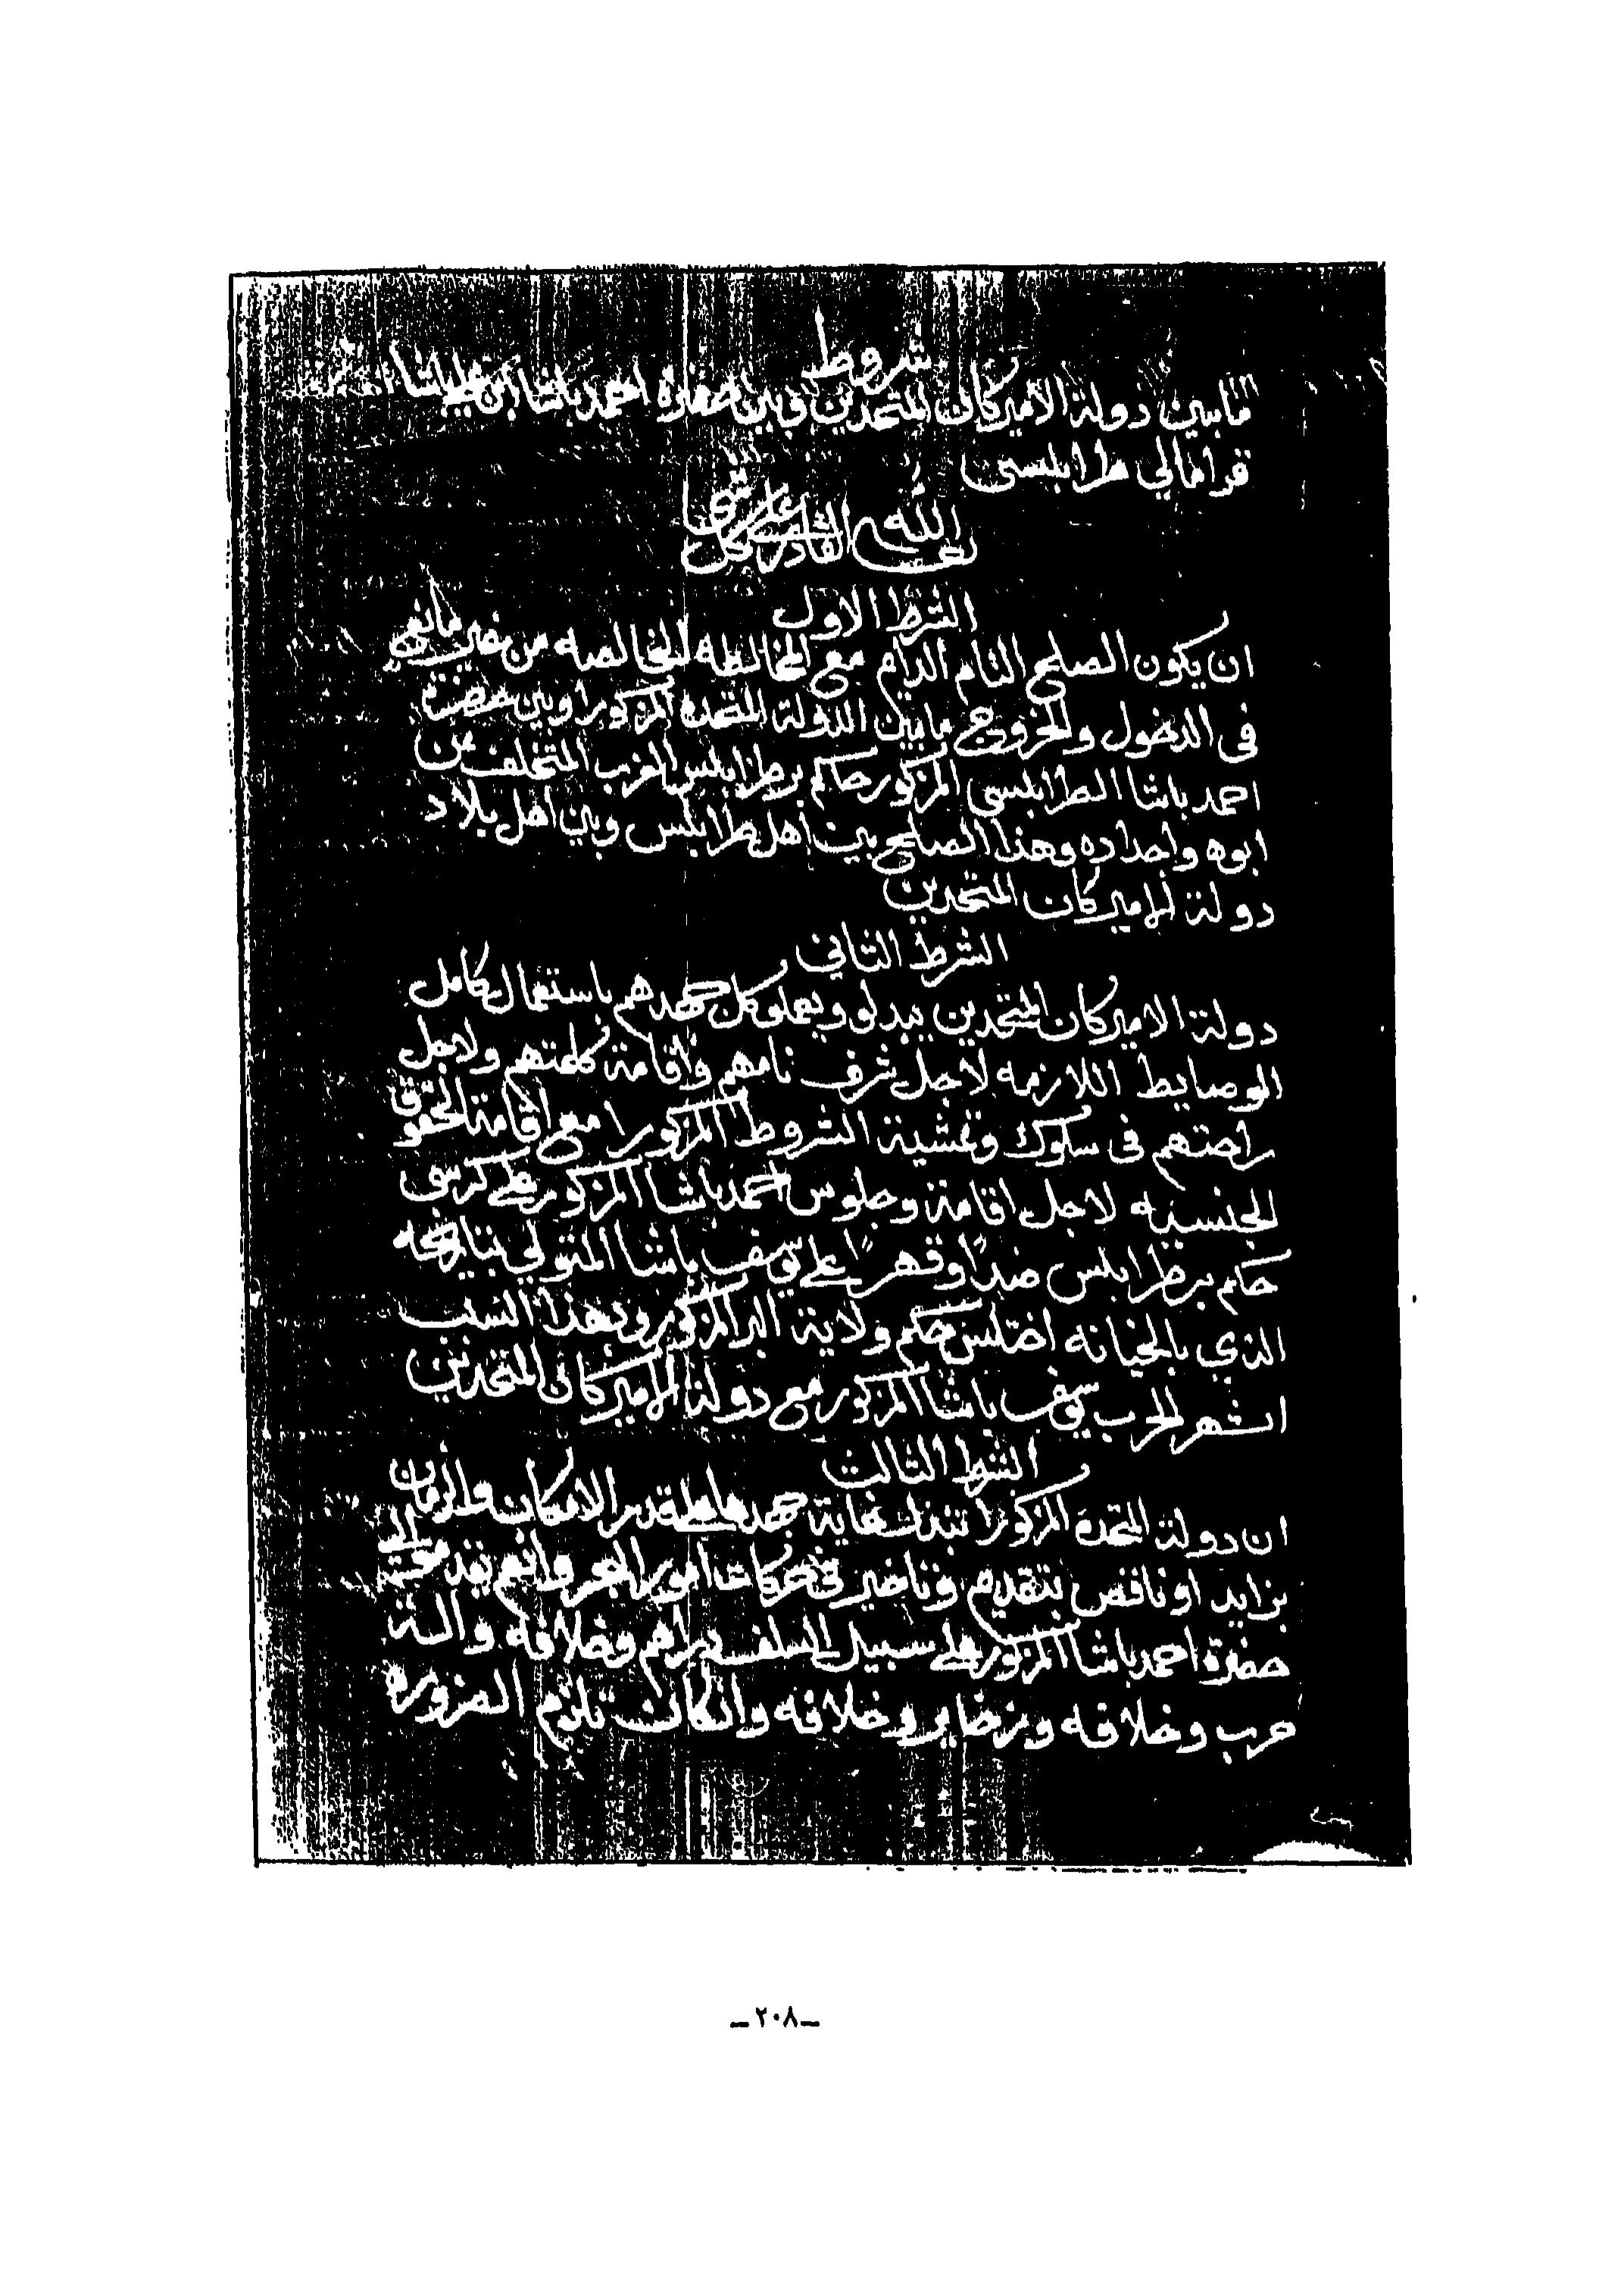 شروط
مابين دولة الاميركان المتحدين وبين حضرة احمد باشا ابن علي باشا
قرامالي طرابلسى
الله القادر على كل شى
الشرط الاول
ان يكون الصلح التام الدايم مع المخالطه المخالصه من غير مانع
فى الدخول والخروج مابين الدولة المتحده المزكورا وبين حضرة
احمد باشا الطرابلسى المزكور حاكم بر طرابلس الغرب المتخلف عن
ابوه واجداده وهذا الصلح بين اهل طرابلس وبين اهل بلاد
دولة الاميركان المتحدين
الشرط الثاني
دولة الاميركان المتحدين يبدلو ويعملو كل جهدهم باستعمال كامل
الوصايط اللازمه لاجل شرف نامهم واقامة كلمتهم ولاجل
راحتهم فى سلوك وتمشية الشروط المزكورا مع اقامة الحقوق
الجنسيه لاجل اقامة وجلوس احمد باشا المزكور على كرسى
حكم بر طرابلس ضداً وقهراً على يوسف باشا المتولي
الذي بالخيانه اختلس حكم ولاية البر المزكور وبهذا السبب
اشهر الحرب يوسف باشا المزكور مع دولة الاميركان المتحدين
الشرط الثالث
ان دولة المتحده المزكورا تبذل غاية جهدها على قدر الامكان والزمان
بزايد او ناقص بتقديم وتاخير فى حركات امور البحر وانهم تقدم الى
حضرة احمد باشا المزكور على سبيل السلف دراهم وخلافه والة
حرب وخلافه وزخاير وخلافه وان كان تلزم الضروره
ـ٢٠٨ـ